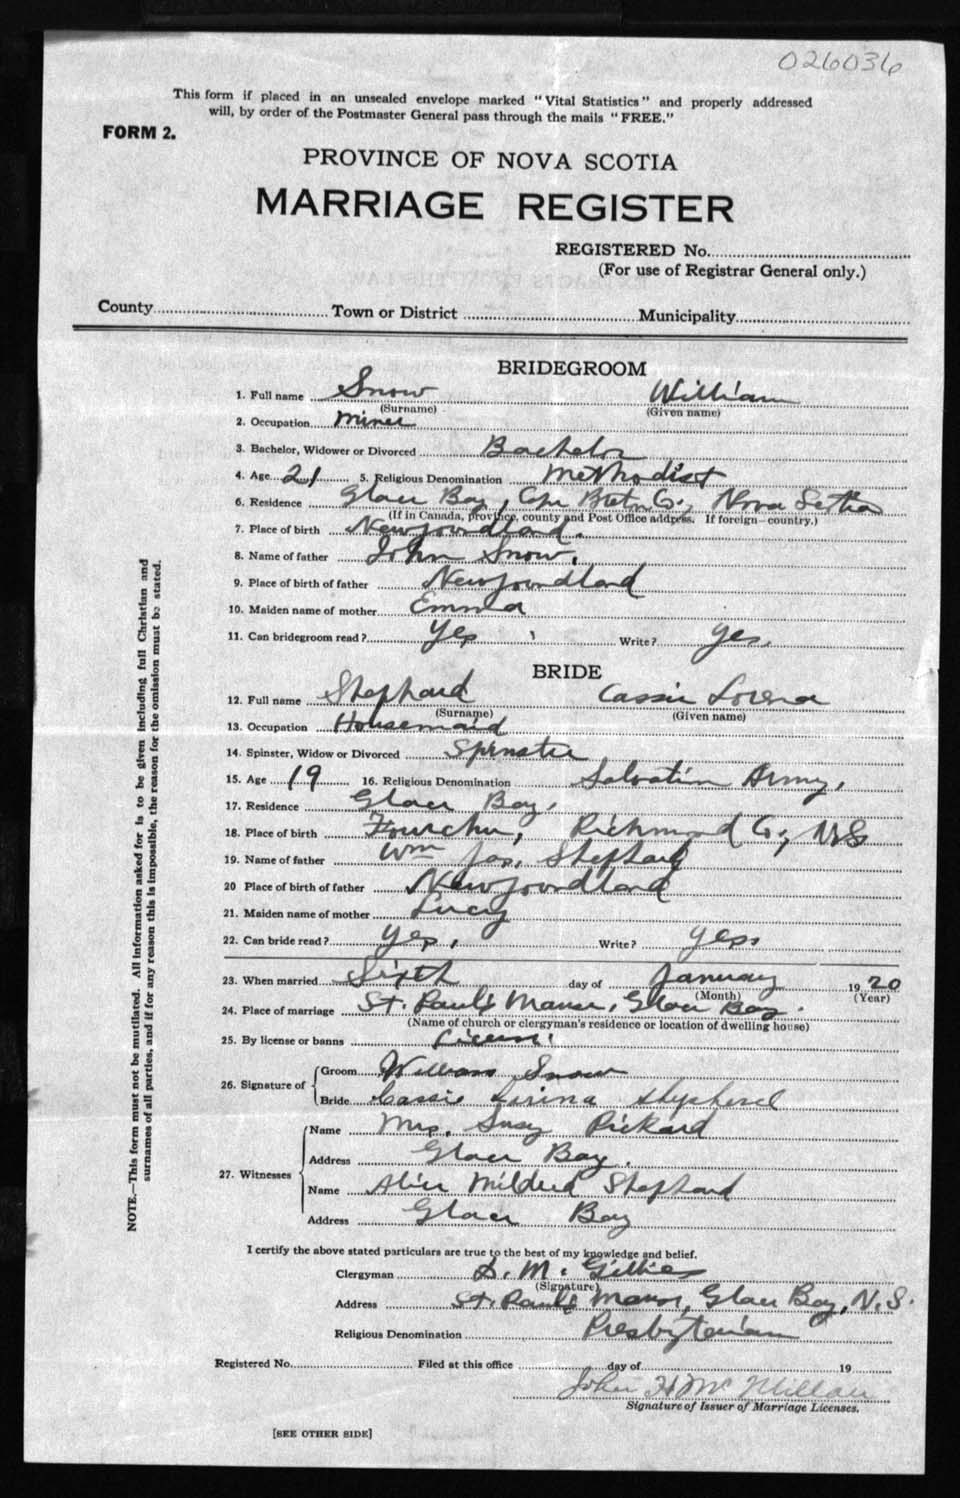 026036
This form if placed in an unsealed envelope marked "Vital Statistics" and properly addressed
will, by order of the Postmaster General pass through the mails "FREE."
FORM 2.
PROVINCE OF NOVA SCOTIA
MARRIAGE REGISTER
REGISTERED No.
(For use of Registrar General only.)
County Town or District Municipality
BRIDEGROOM
1. Full name Snow William
(Surname) (Given name)
2. Occupation Miner
3. Bachelor, Widower or Divorced Bachelor
4. Age 21 5. Religious Denomination Methodist
6. Residence Glace Bay, Cape Breton Co, Nova Scotia
(If in Canada, province, county and Post Office address. If foreign—country.)
7. Place of birth Newfoundland.
8. Name of father John Snow.
9. Place of birth of father Newfoundland
10. Maiden name of mother Emma
11. Can bridegroom read? Yes Write? Yes.
BRIDE
12. Full name Shephard Cassie Lorena
(Surname) (Given name)
13. Occupation Housemaid
14. Spinster, Widow or Divorced Spinster
15. Age 19 16. Religious Denomination Salvation Army,
17. Residence Glace Bay,
18. Place of birth Fourchu, Richmond Co, NS
19. Name of father Wm Jas. Shephard
20 Place of birth of father Newfoundland
21. Maiden name of mother Lucy
22. Can bride read? Yes, Write? Yes
23. When married Sixth day of January 1920
(Month) (Year)
24. Place of marriage St. Paul's Manse, Glace Bay.
(Name of church or clergyman's residence or location of dwelling house)
25. By license or banns License
26. Signature of Groom William Snow
Bride Cassie Lirina Shepherd
27. Witnesses
Name Mrs. Susy Rickard
Address Glace Bay.
Name Alice Mildred Shephard
Address Glace Bay
I certify the above stated particulars are true to the best of my knowledge and belief.
Clergyman D. M. Gillies
(Signature)
Address St. Paul's Manse, Glace Bay, N.S.
Religious Denomination Presbyterian
Registered No. Filed at this office day of 19
John H McMillan
Signature of Issuer of Marriage Licenses.
[SEE OTHER SIDE]
NOTE.—This form must not be mutilated. All information asked for is to be given including full Christian and
surnames of all parties, and if for any reason this is impossible, the reason for the omission must be stated.